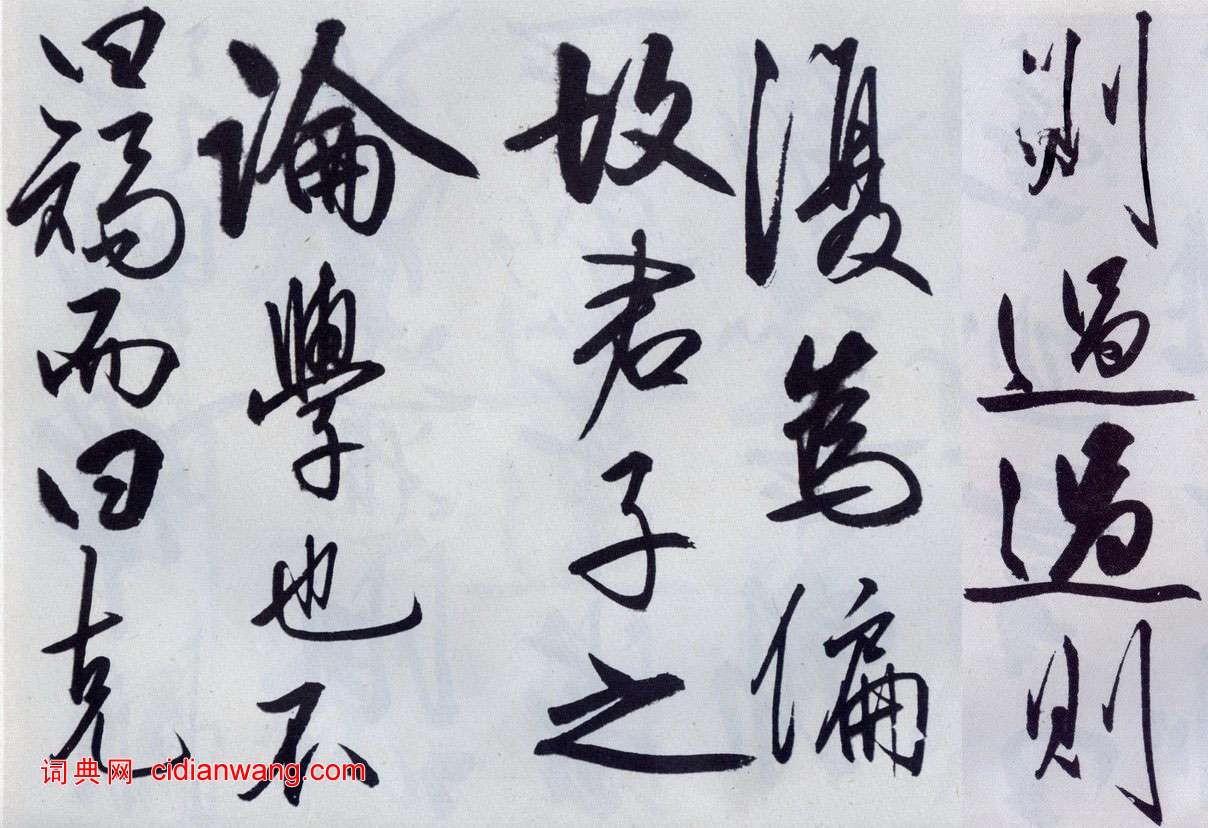 則過過則
復爲偏
故君子之
論學也不
曰矯而曰克
词典网 cidianwang.com